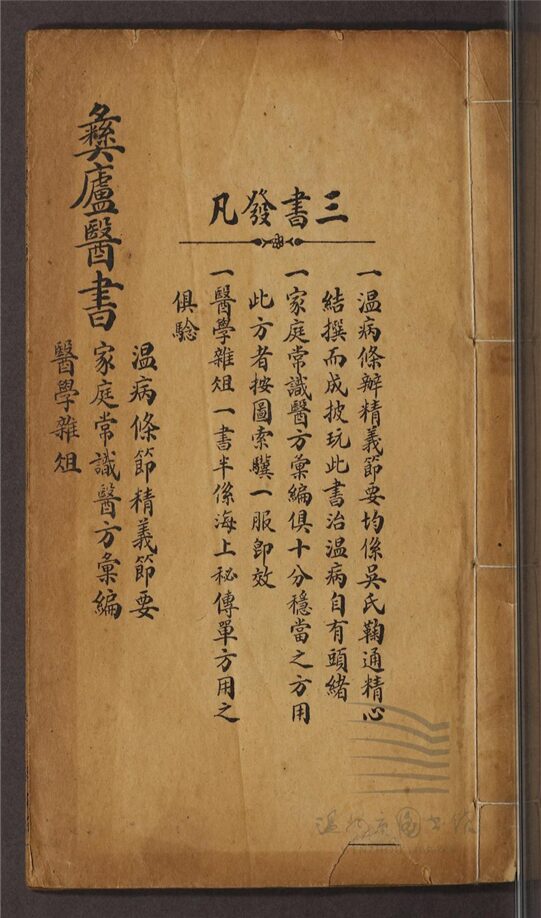 三書發凡
一温病條辦精義節要均係吳氏鞠通精心
結撰而成披玩此書治温病自有頭緒
一家庭常識醫方彙編俱十分穩當之方用
此方者按圖索驥一服即效
一醫學雜俎一書半係海上秘傳單方用之
俱騐
彝廬醫書
温病條節精義節要
家庭常識醫方彙編
醫學雜俎